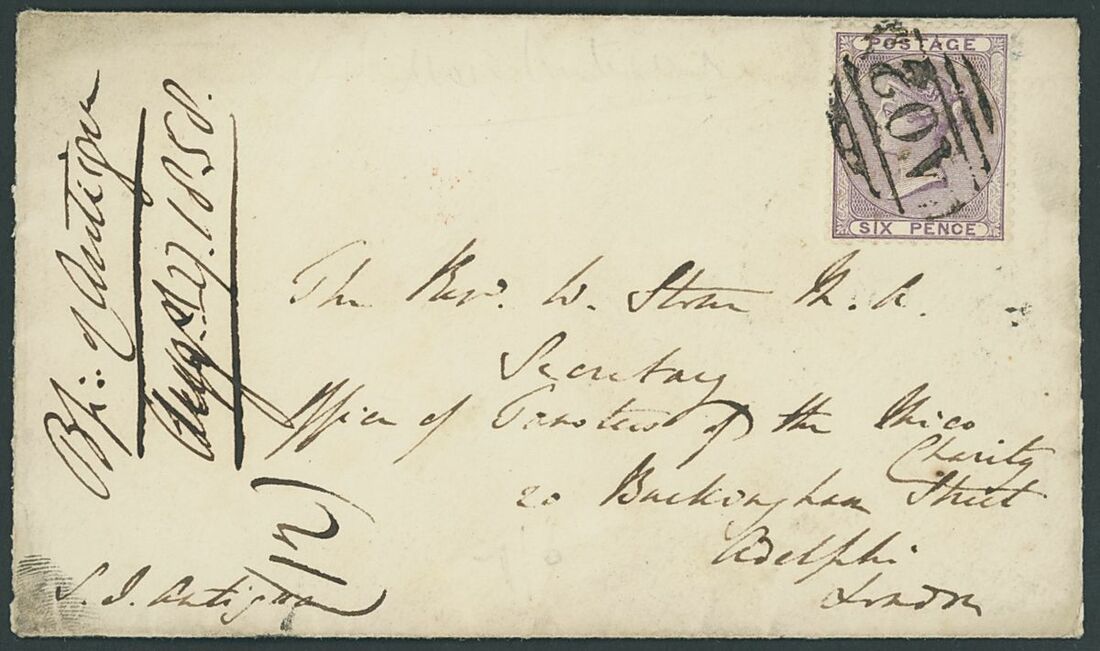 POSTAGE
A02
SIX PENCE
Bp: of Antigua
Augst 27. 1858.
The Revd. W. M. A.
Secretary
Office of Trustees of the Mico
Charity
20 Buckingham Street
Adelphi
London
S. J. Antigua
(12)